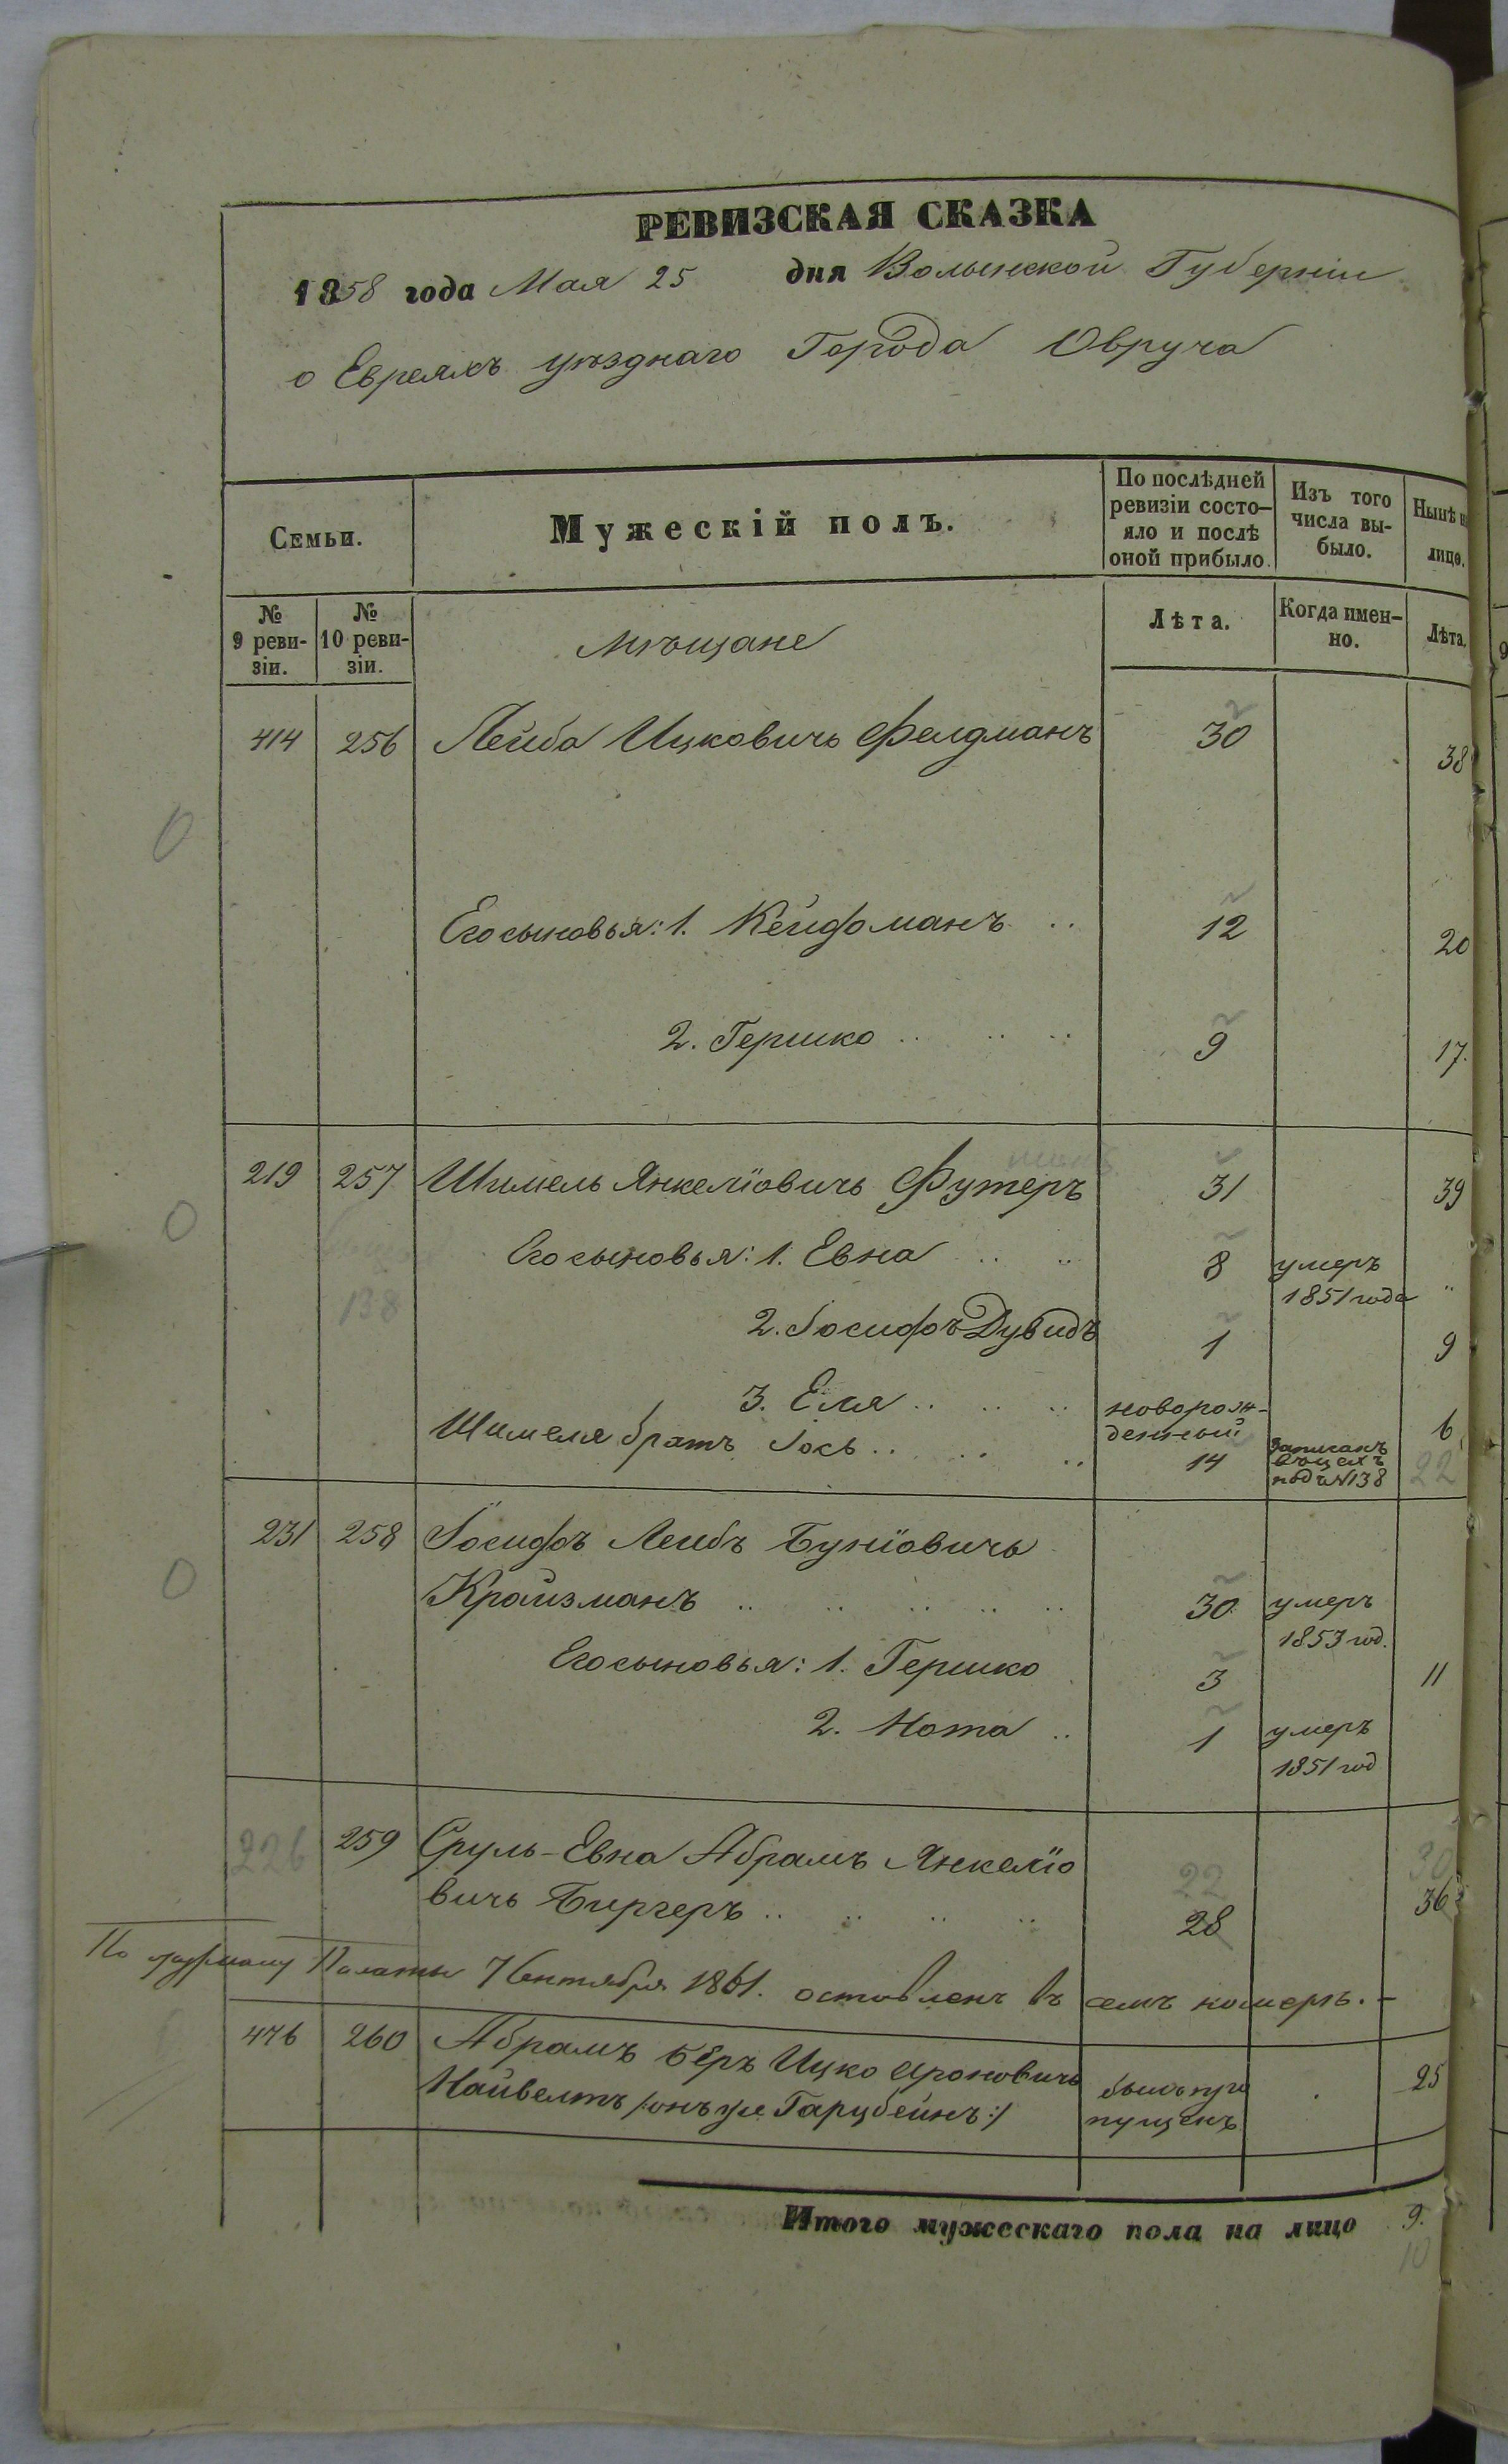 РЕВИЗСКАЯ СКАЗКА
1858 года Мая 25 дня Волынской Губерніи
о Евреяхъ уѣзднаго Города Овруча
Семьи.
Мужескій полъ.
По послѣдней
ревизіи состо-
яло и послѣ
оной прибыло.
Изъ того
числа вы-
было.
Нынѣ
лицо.
№
9 реви-
зіи.
№
10 реви-
зіи.
мѣщане
Лѣта.
Когда имен-
но.
Лѣта.
414 256 Лейба Ицковичъ Фелдманъ 30 38
Его сыновья: 1. Кейфманъ 12 20
2. Гершко 9 17.
219 257 Шимель Янкеліовичъ Футеръ 31 39
Его сыновья: 1. Евна 8 умеръ
1851 года
138
2. Іосифъ Дувидъ 1 9
3. Еля новорож-
денный 6
Шимеля братъ Іось 14 записанъ
въ цехъ
подъ №138 22
231 258 Іосифъ Леибъ Буніовичъ
Крайзманъ 30 умеръ
1853 год.
Его сыновья: 1. Гершко 3 11
2. Нота 1 умеръ
1851 год
226 259 Сруль-Евна Абрамъ Янкеліо 22 30
вичъ Биргеръ 28 36
По Палаты 7 Сентября 1861. оставленъ въ семъ номерѣ.-
476 260 Абрамъ Беръ Ицко Ароновичъ былъ про 25
Найвелтъ /:онъ же Гарцбейнъ:/ пущенъ
Итого мужескаго пола на лицо 9.
10